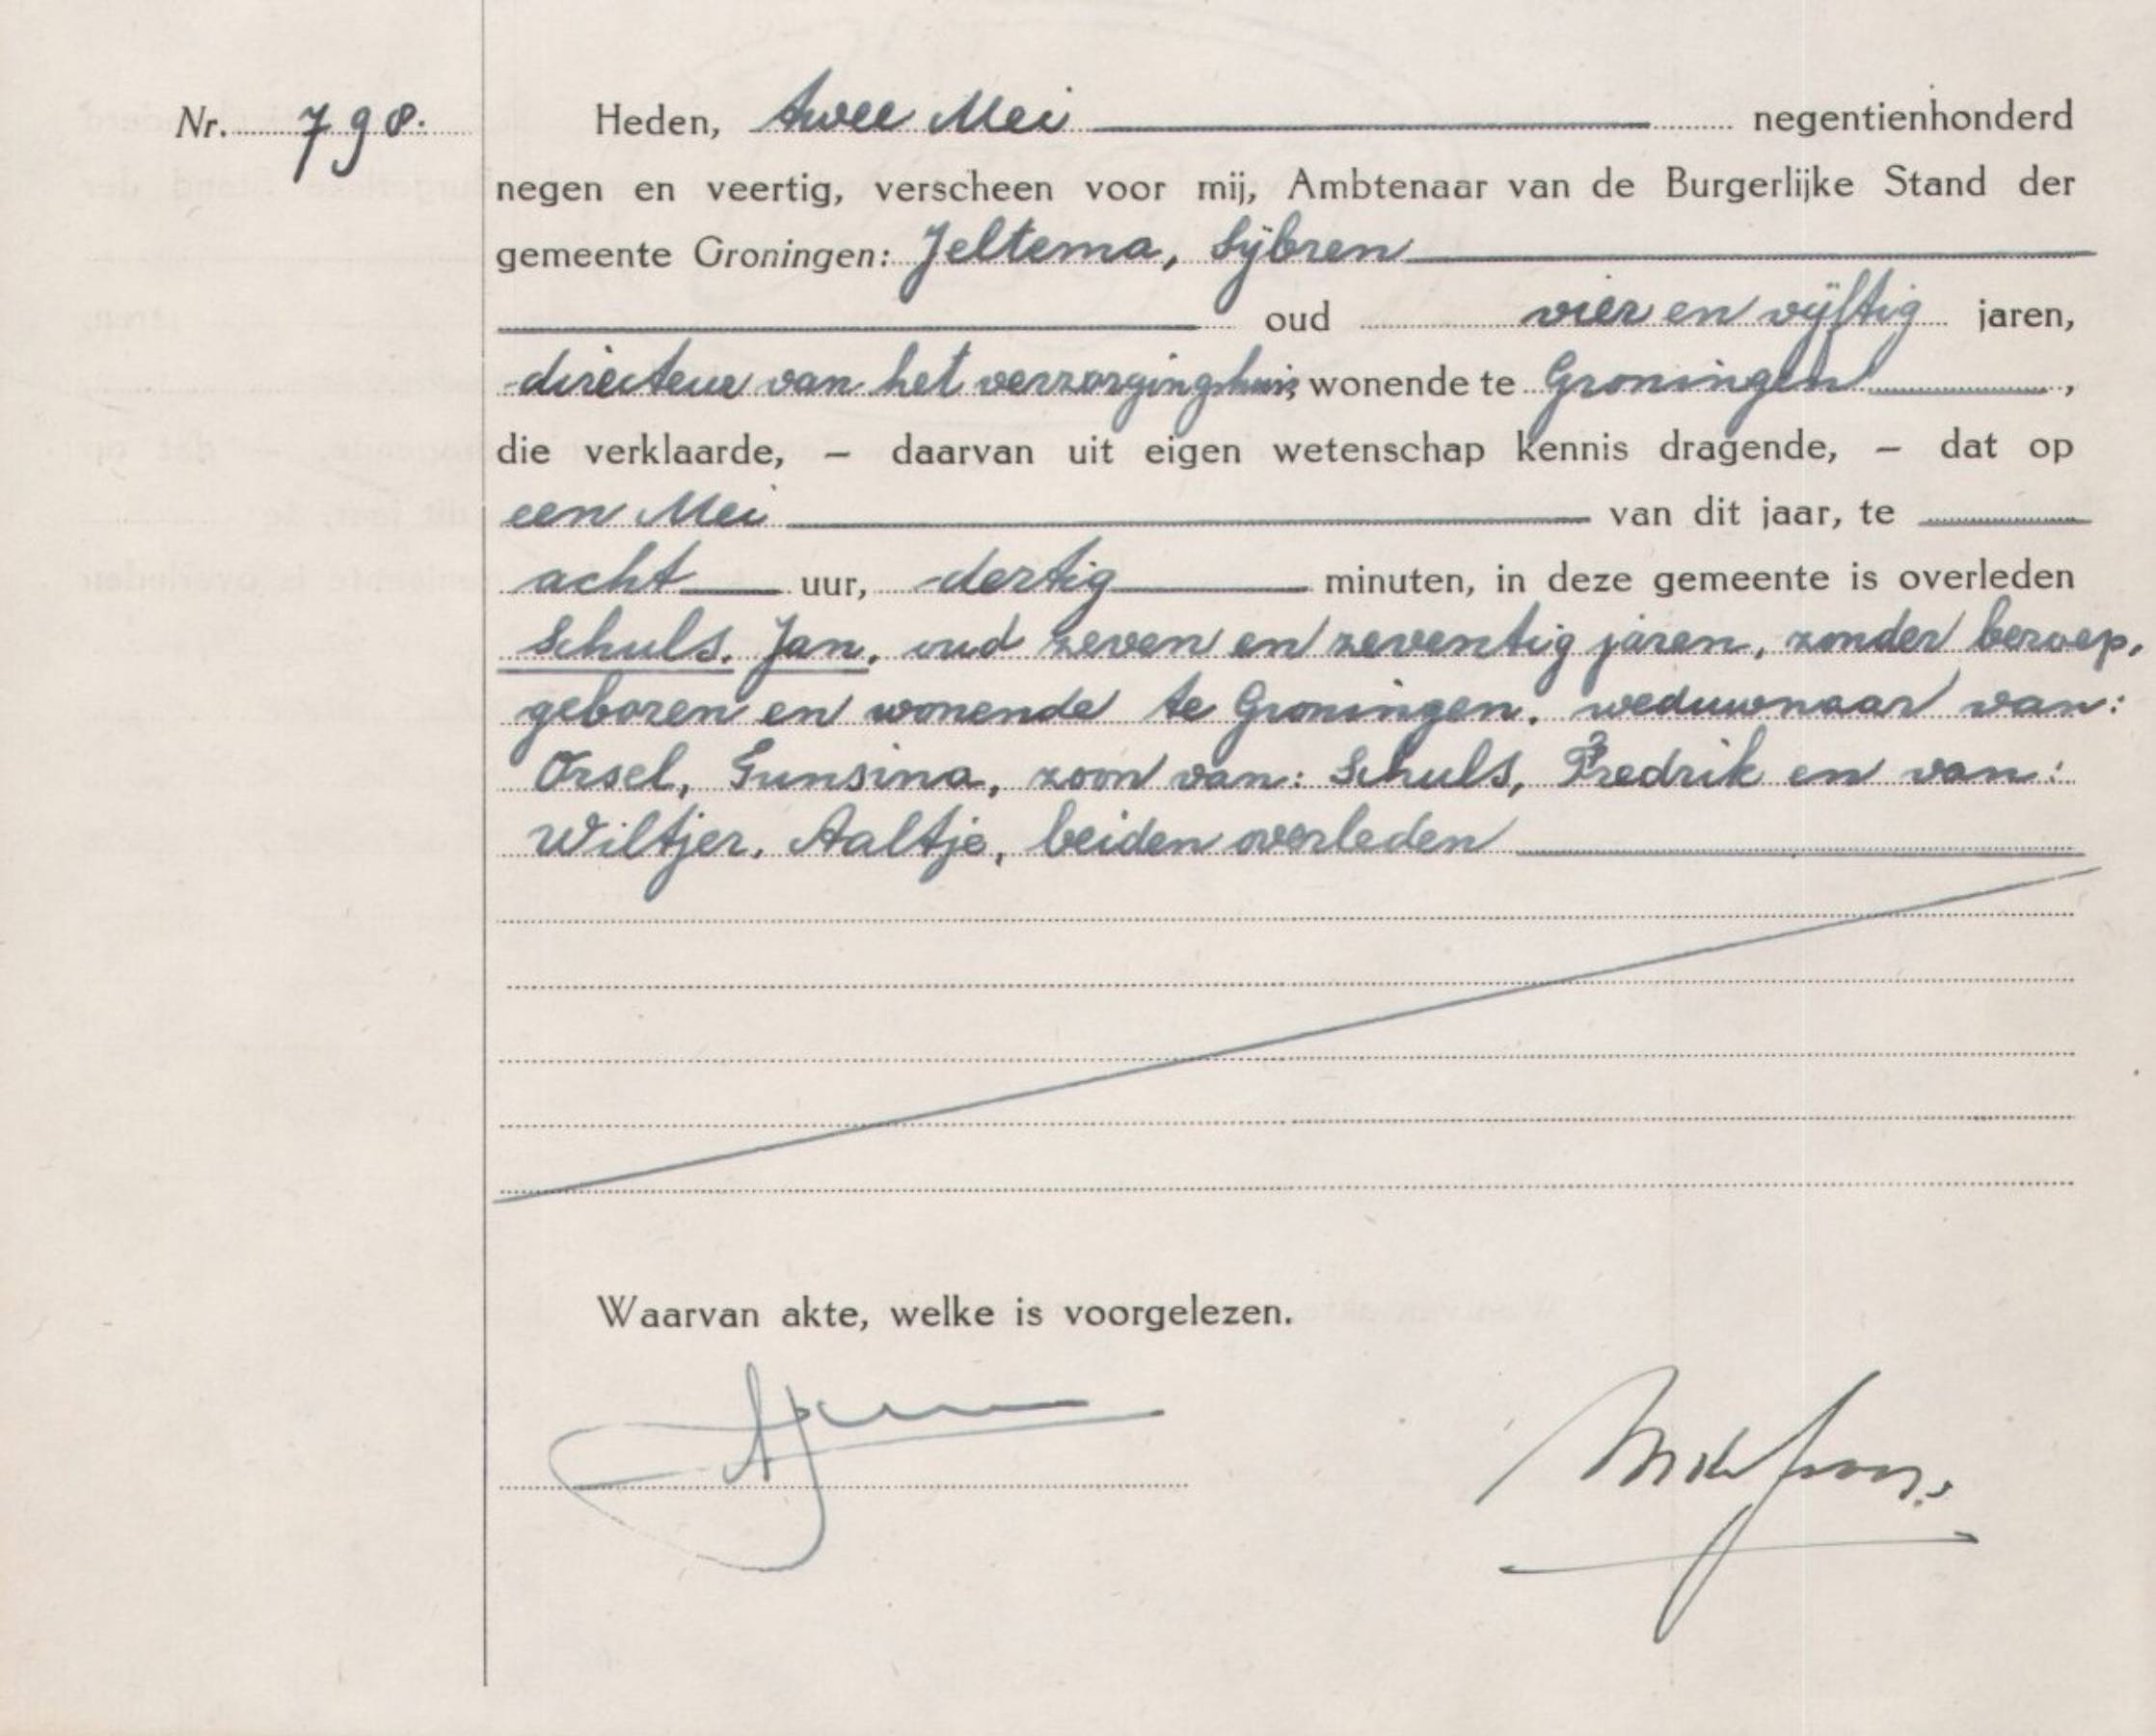 Nr. 798.
Heden, twee Mei negentienhonderd
negen en veertig, verscheen voor mij, Ambtenaar van de Burgerlijke Stand der
gemeente Groningen: Jeltema, Sijbren
oud vier en vijftig jaren,
directeur van het verzorgingshuis, wonende te Groningen,
die verklaarde, – daarvan uit eigen wetenschap kennis dragende, – dat op
een Mei van dit jaar, te
acht uur, dertig minuten, in deze gemeente is overleden
Schuls, Jan, oud zeven en zeventig jaren, zonder beroep,
geboren en wonende te Groningen, weduwnaar van:
Orsel, Gunsina, zoon van: Schuls, Fredrik en van:
Wiltjer, Aaltje, beiden overleden
Waarvan akte, welke is voorgelezen.